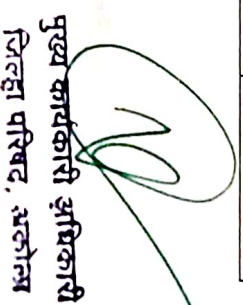 मुख्य कार्यकारी अधिकारी
जिल्हा परिषद, अकोला